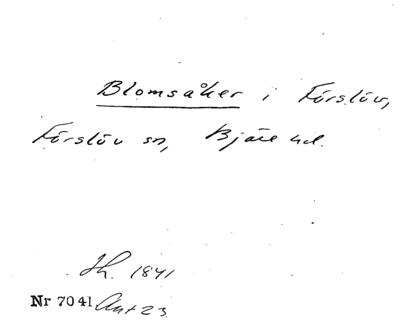 Blomsåker i Förslöv,
Förslöv sn, Bjäre hd.
Lh. 1841
Nr 7041 Akt 23